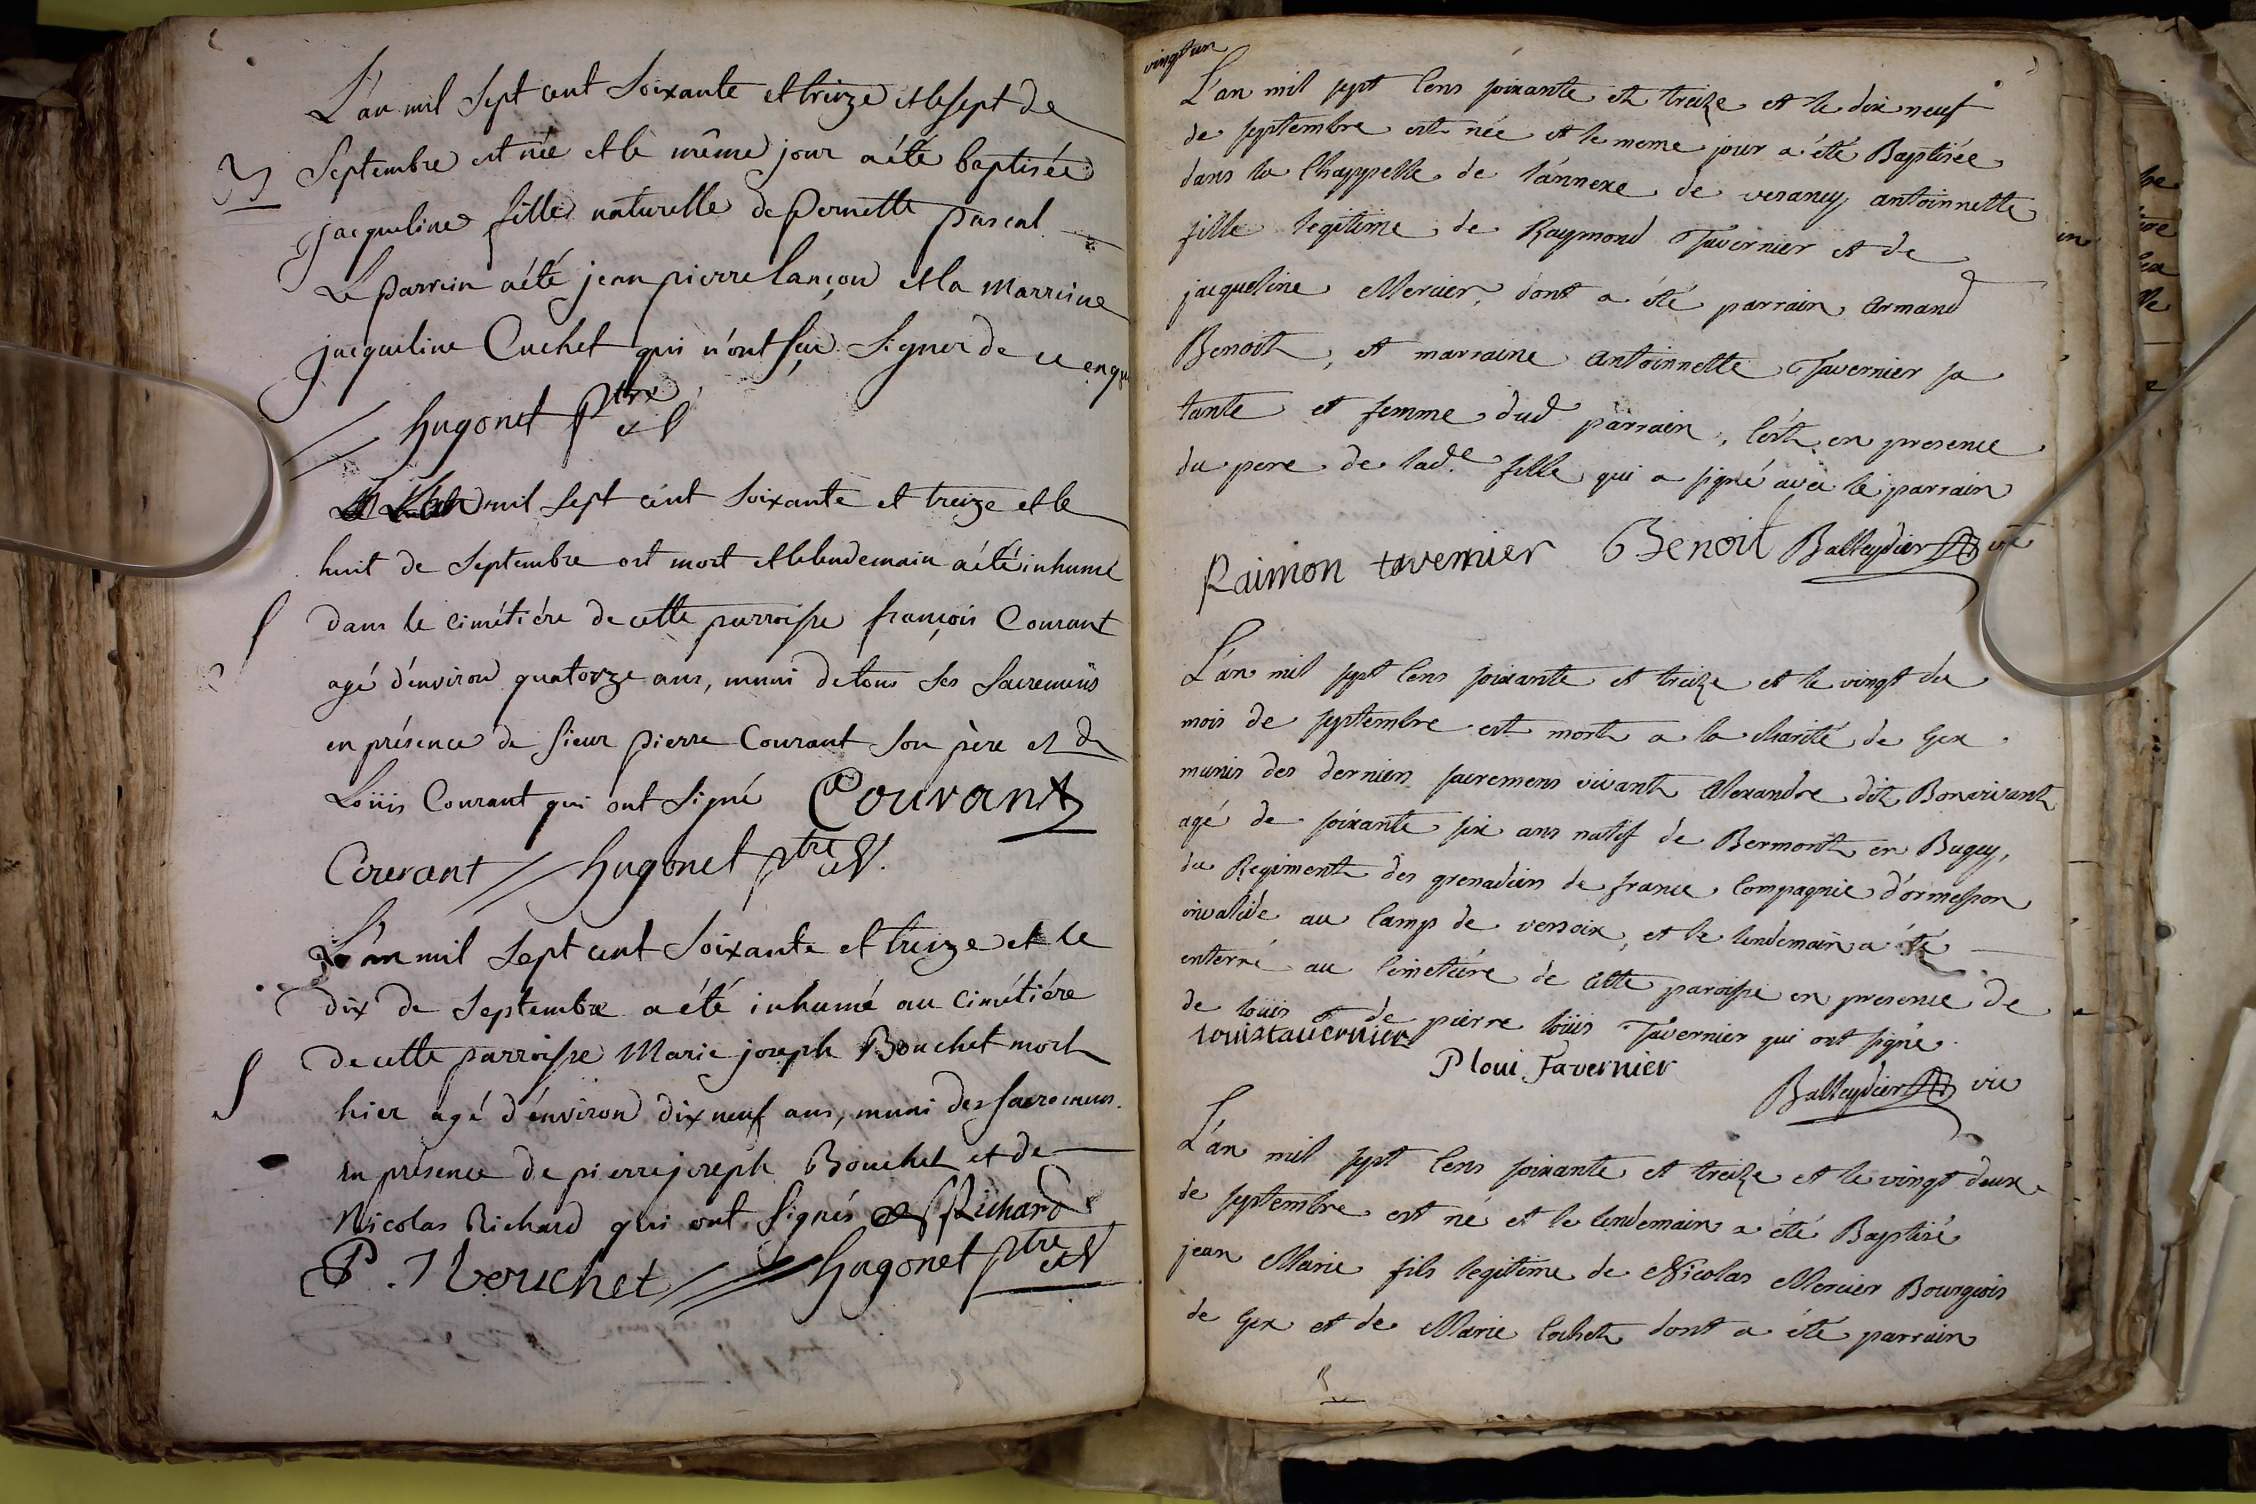 L'an mil sept cent soixante et treize et le sept de
Septembre est née et le même jour a été baptisée
jacqueline fille naturelle de Pernette Pascal
Le parrein a été jean pierre Lançon et la marreine
jacqueline Cuchet qui n'ont sçu signer de ce enqu
hugonet ptre
mil sept cent soixante et treize et le
huit de Septembre est mort et le lendemain a été inhumé
dans le cimétiére de cette parroisse françois Courant
agé d'environ quatorze ans, muni de tous ses sacremens
en présence de sieur pierre Courant son père et de
Loüis Courant qui ont signé Couvant
Couvant hugonet ptre
L'an mil sept cent soixante et treize et le
dix de Septembre a été inhumé au cimétiére
de cette parroisse Marie joseph Bouchet mort
hier agé d'énviron dix neuf ans, muni des sacremens.
en présence de pierre joseph Bouchet et de
Nicolas Richard qui ont signés Richard
P. J bouchet hugonet ptre
vingt un
L'an mil sept cens soixante et treize et le dix neuf
de septembre est née et le meme jour a été Baptisée
dans la Chappelle de l'annexe de vesancy antoinnette
fille legitime de Raymond Tavernier et de
jacqueline Mercier, dont a été parrain armand
Benoit, et marraine antoinnette Tavernier sa
tante et femme dud parrain, c'est en presence
du pere de lad.e fille qui a signé avec le parrain
Raimon tavernier Benoit Balleydier vic
L'an mil sept cens soixante et treize et le vingt du
mois de septembre est mort a la charité de Gex
munis des derniers sacremens vivant Alexandre dit Bonvivant
agé de soixante six ans natif de Bermont en Bugey,
du Regiment des grenadiers de france compagnie d'ormesson
invalide au camp de versoix, et le lendemain a été
enterré au cimetiére de cette paroisse en presence de
de loüis et de pierre loüis Tavernier qui ont signé.
louis tavernier
P loui Tavernier
Balleydier vic
L'an mil sept cens soixante et treize et le vingt deux
de septembre est né et le lendemain a été Baptisé
jean Marie fils legitime de Nicolas Mercier Bourgeois
de Gex et de Marie Cochet dont a été parrain